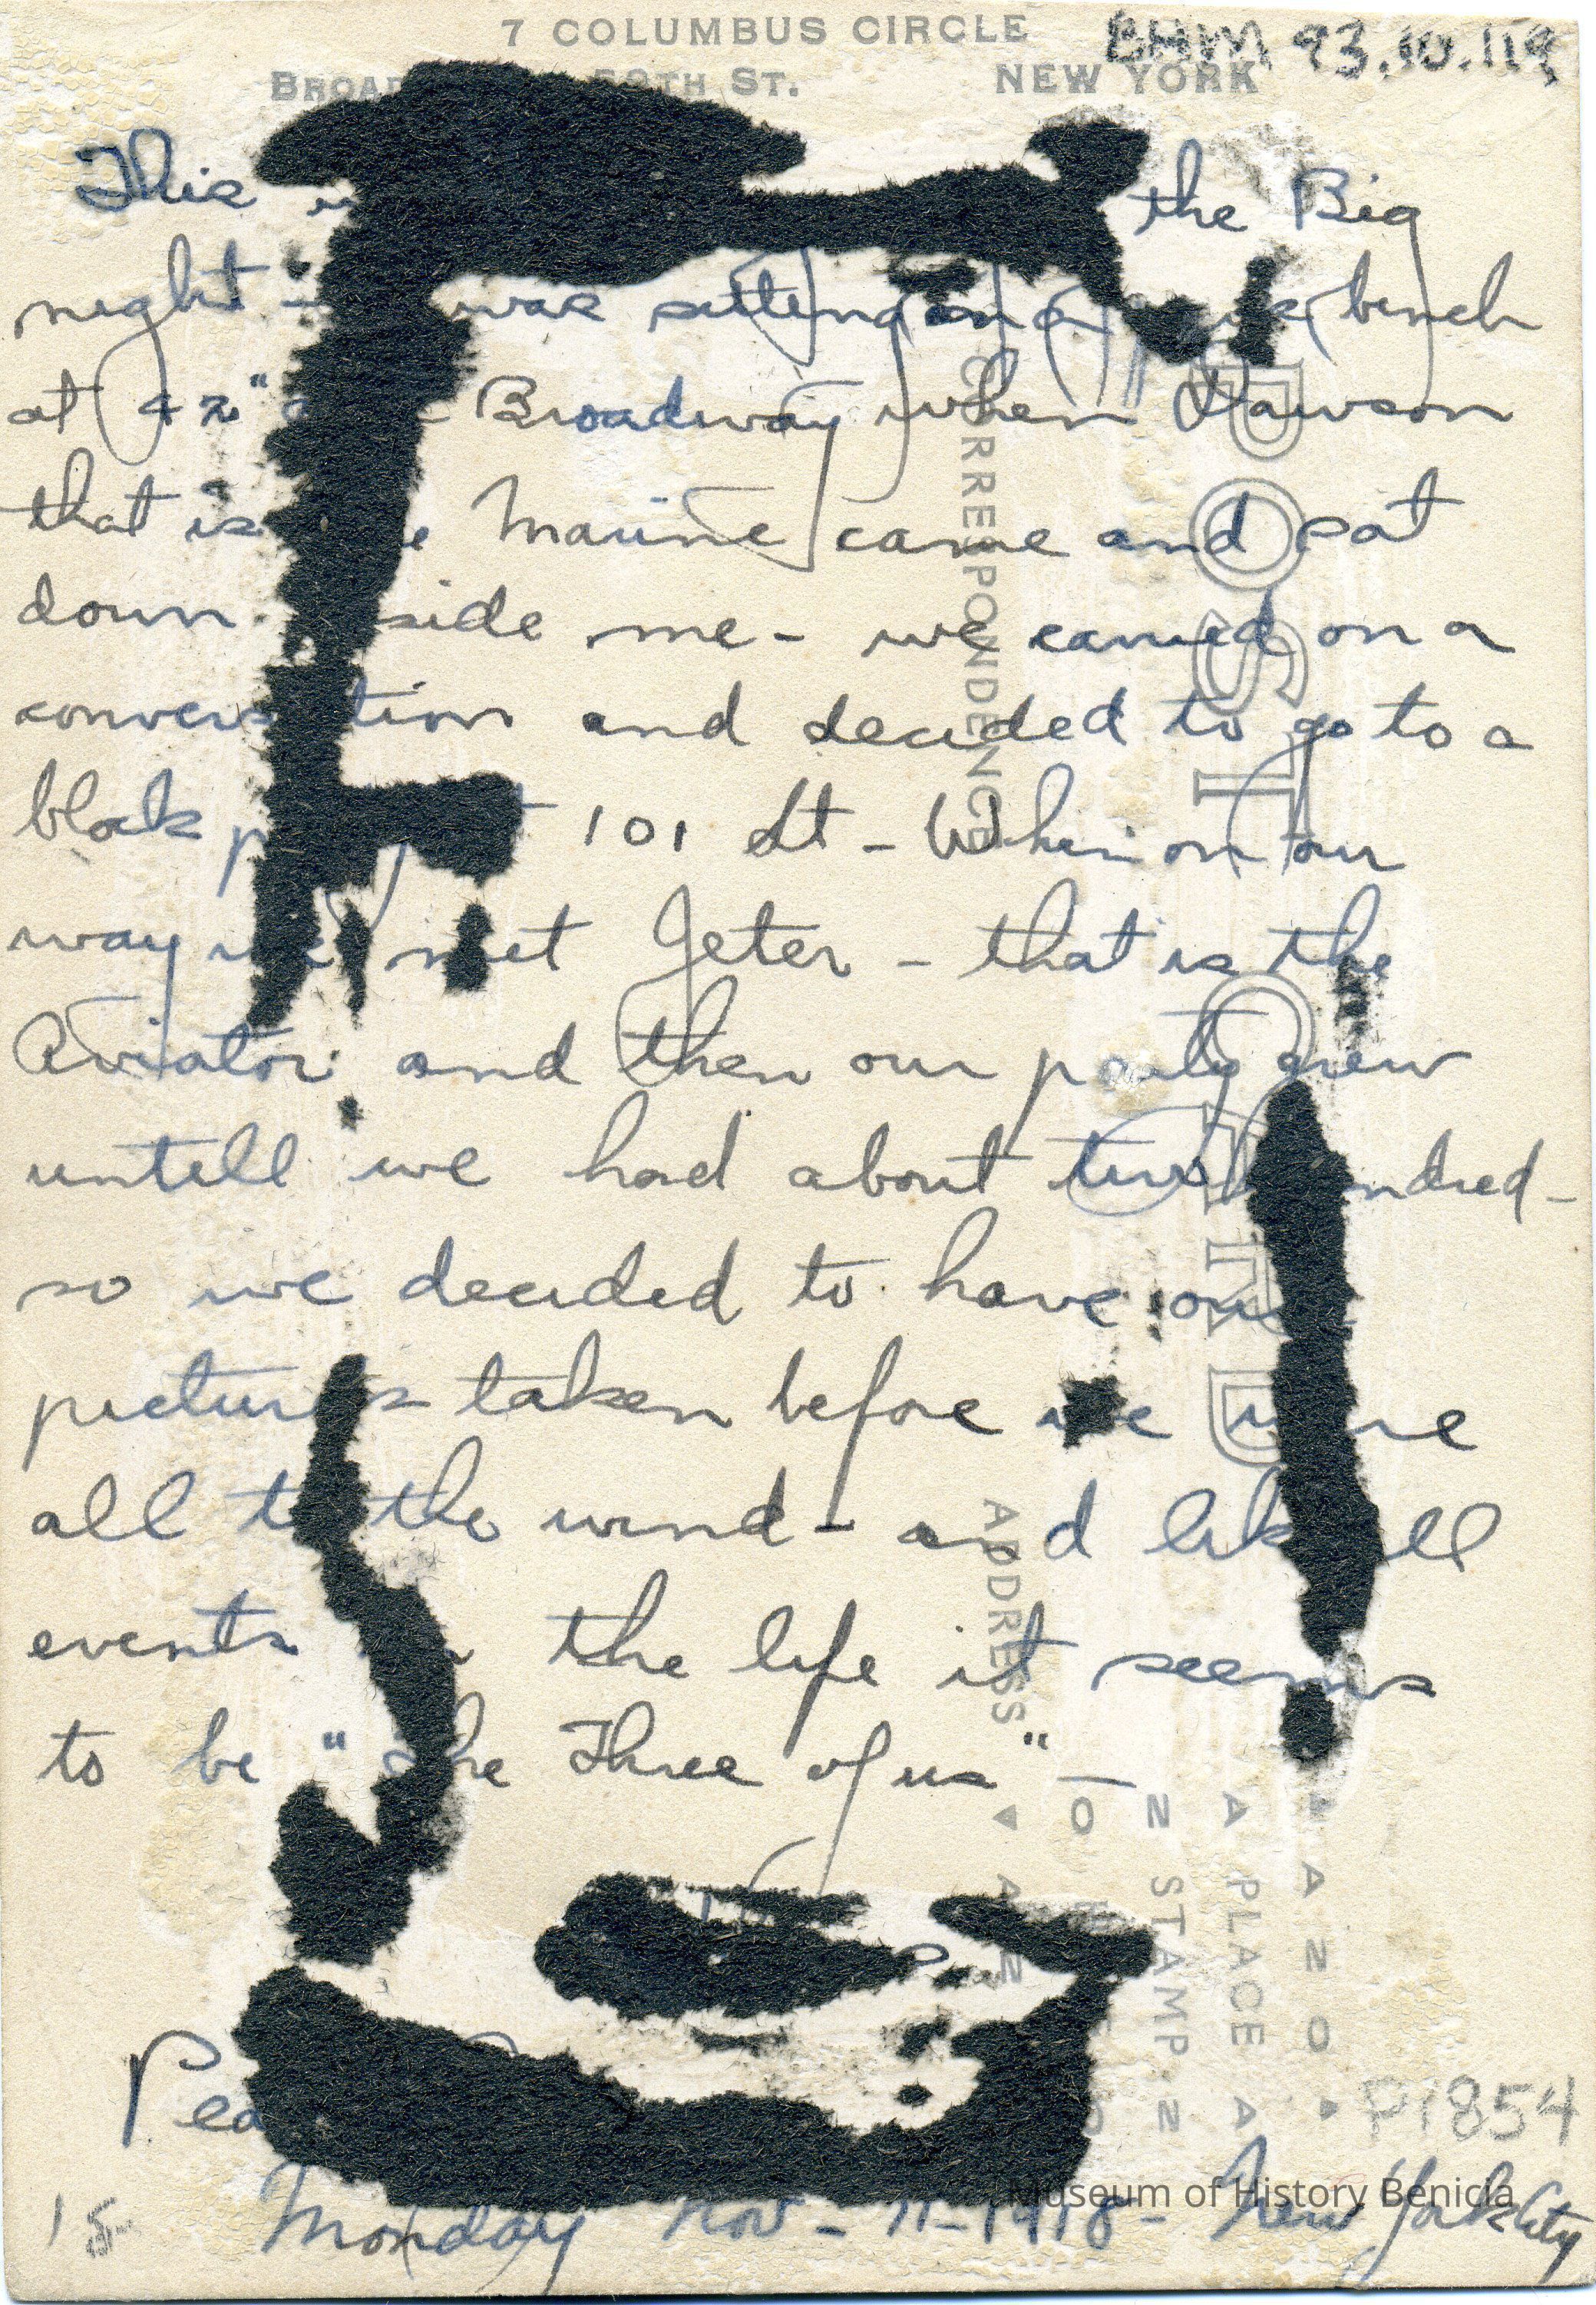 7 COLUMBUS CIRCLE
BHM 93.10.119
ST. NEW YORK
This the Big
night - was sitting on a bench
at 42" Broadway when Dawson
that is Marine came and sat
down side me - we carried on a
conversation and decided to go to a
block 101 St - When on our
way we met Jeter - that is the
Aviator and then our party grew
untill we had about two hundred -
so we decided to have our
pictures taken before we were
all to the wind - and like all
events the life it seems
to be " The Three of us " -
Monday Nov - 11 - 1918 - New York City
P1854
15
Museum of History Benicia
CORRESPONDENCE
ADDRESS
POST CARD
AZO
PLACE
STAMP